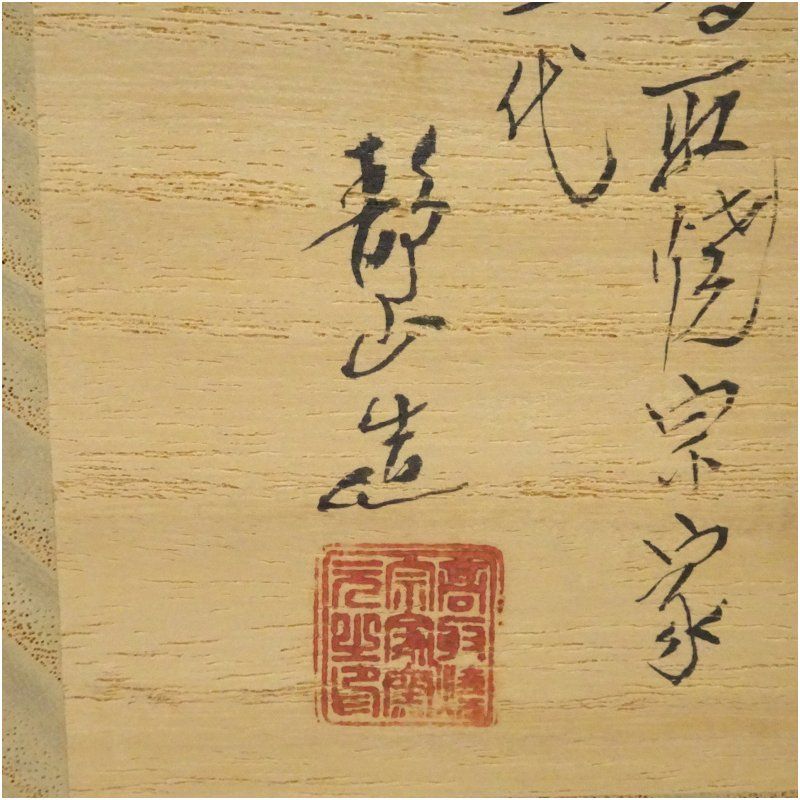 取焼宗家
代
静山造
高取焼
宗家窯
元之印